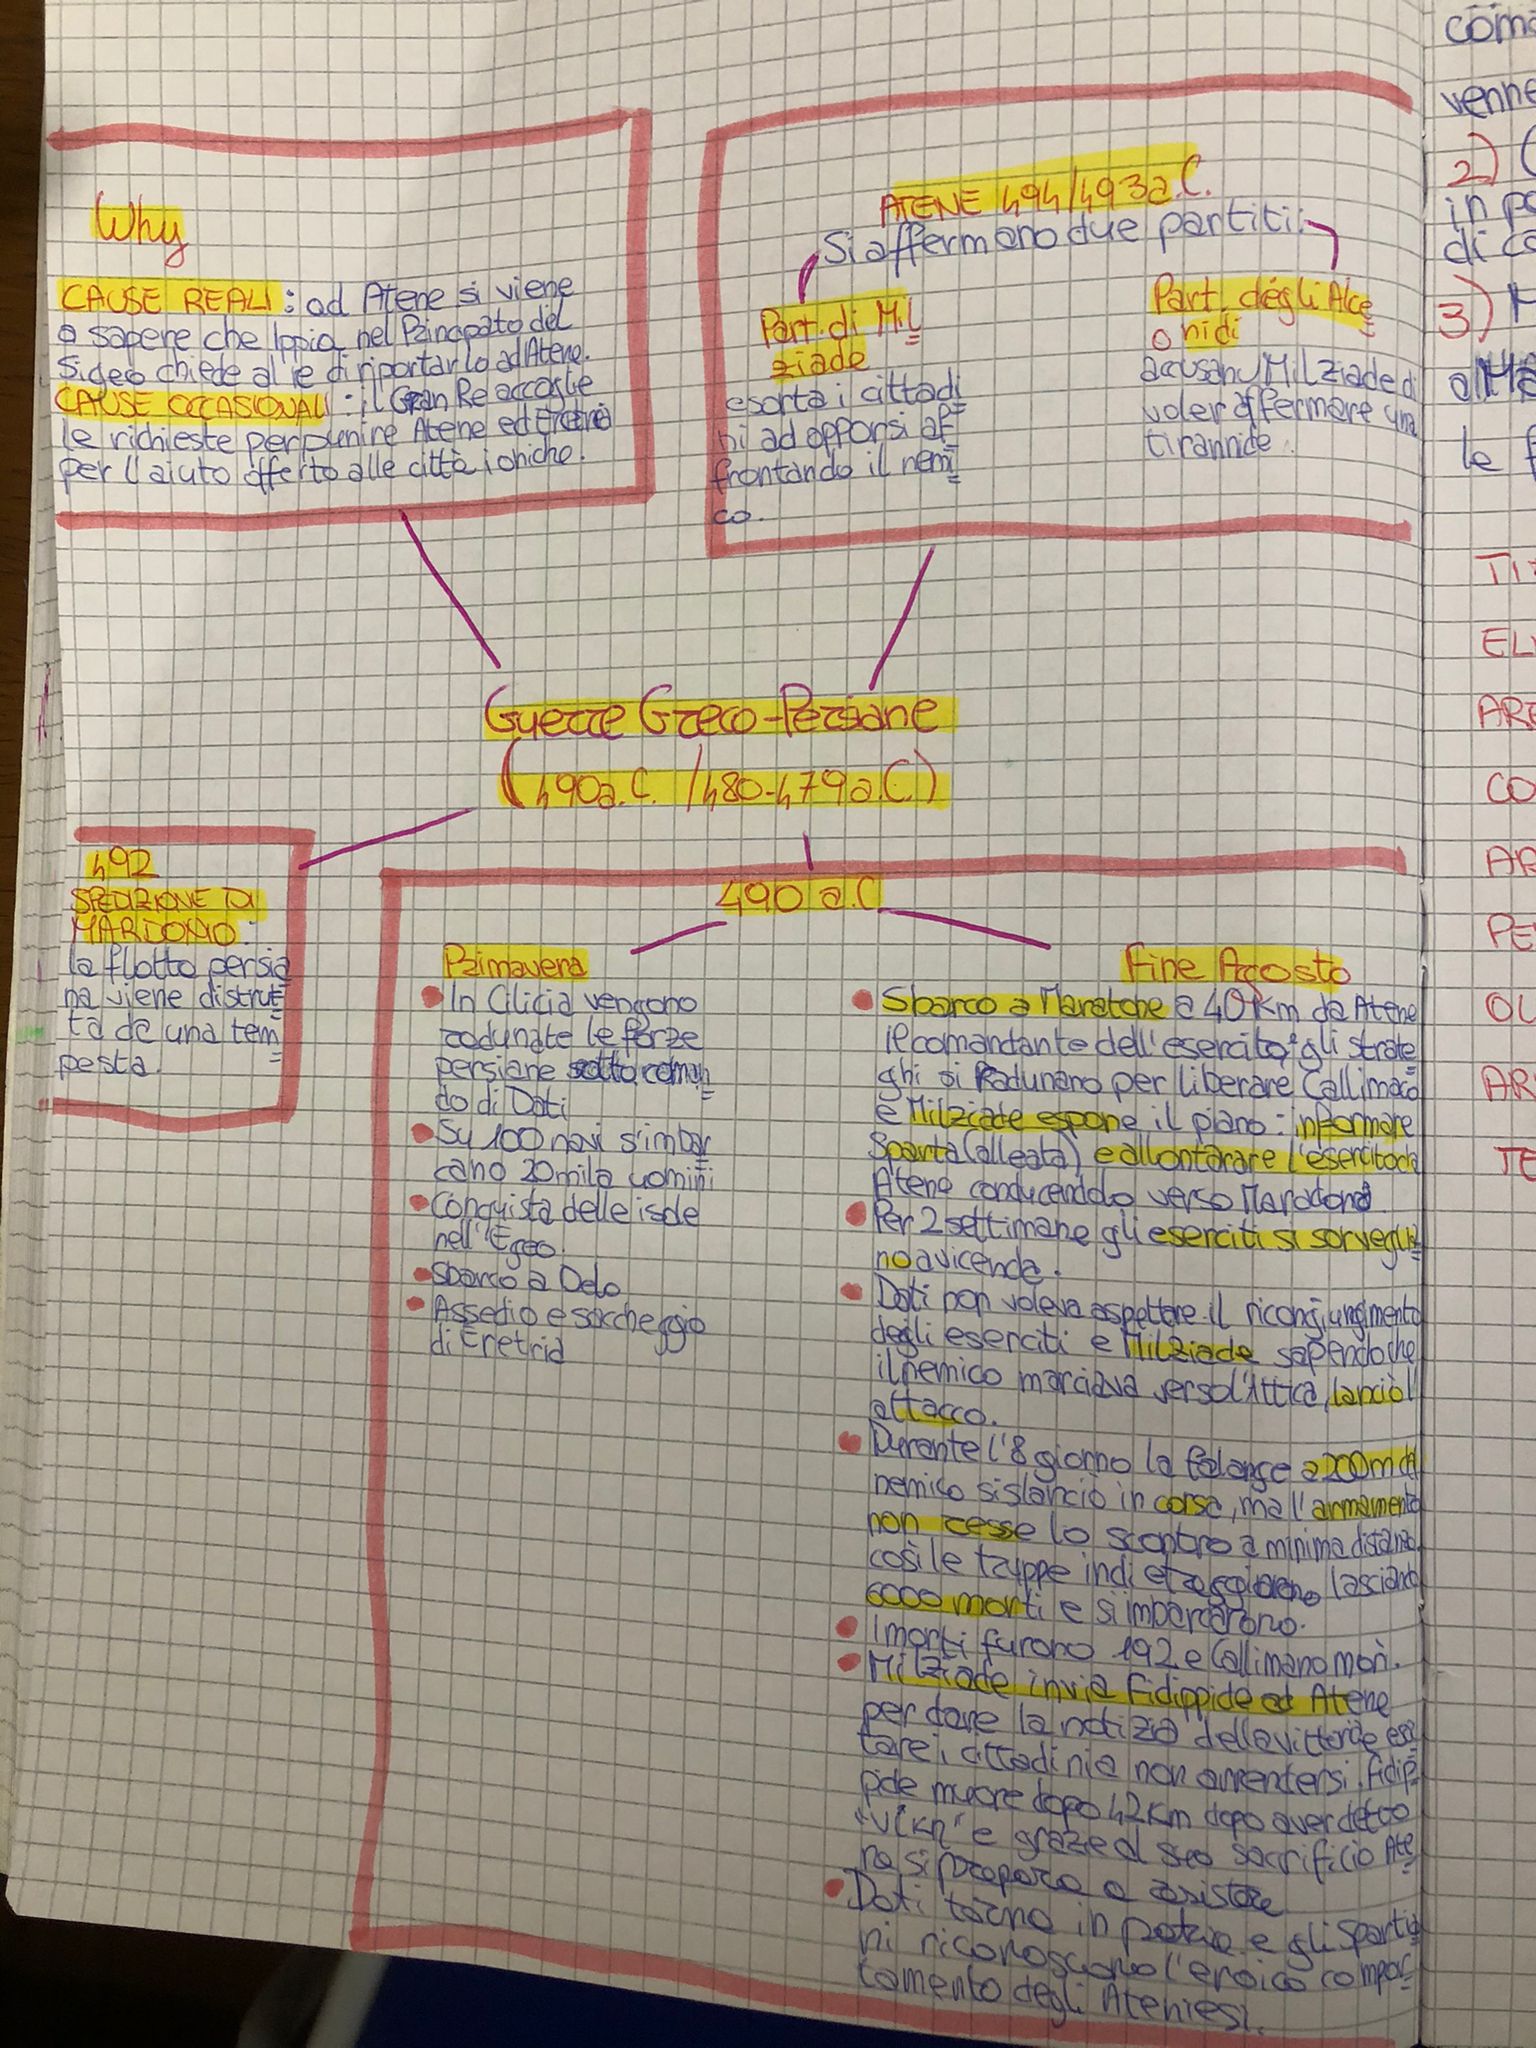 Why
CAUSE REALI: ad Atene si viene
a sapere che Ippia, nel Principato del
Sigeo chiede al re di riportarlo ad Atene.
CAUSE OCCASIONALI: il Gran Re accoglie
le richieste per punire Atene ed Eretria
per l'aiuto offerto alle città ioniche.
ATENE 494/493 a.C.
Si affermano due partiti:
Part. di Mil
ziade
esorta i cittadi
ni ad opporsi af
frontando il nemi
co.
Part. degli Alce
onidi
accusano Milziade di
voler affermare una
tirannide.
Guerre Greco-Persiane
(490a.C. /480-479a.C.)
492
SPEDIZIONE DI
MARDONIO:
la flotta persia
na viene distrut
ta da una tem
pesta.
490 a.C
Primavera
In Cilicia vengono
radunate le forze
persiane sotto coman
do di Dati
Su 100 navi s'imbar
cano 20mila uomini
Conquista delle isole
nell'Egeo
Sbarco a Delo
Assedio e saccheggio
di Eretria
Fine Agosto
Sbarco a Maratona a 40Km da Atene
il comandante dell'esercito e gli strate
ghi si radunano per liberare Callimaco
e Milziade espone il piano: informare
Sparta (alleata) e allontanare l'esercito da
Atene conducendolo verso Maratona
Per 2 settimane gli eserciti si sorveglia
no a vicenda.
Dati non voleva aspettare il ricongiungimento
degli eserciti e Milziade sapendo che
il nemico marciava verso l'Attica, lanciò l'
attacco.
Durante l'8 giorno la falange a 200m dal
nemico si slanciò in corsa, ma l'armamento
non resse lo scontro a minima distanza
così le truppe indietreggiarono lasciando
6000 morti e si imbarcarono.
I morti furono 192 e Callimano morì.
Milziade invia Fidippide ad Atene
per dare la notizia della vittoria e esor
tare i cittadini a non arrendersi. Fidip
pide muore dopo 42Km dopo aver detto
e grazie al suo sacrificio Ate
ne si prepara a resistere
Dati torna in patria e gli Sparta
ni riconoscono l'eroico compor
tamento degli Ateniesi.
come
venne
2)
in po
di co
3)
le f
ELE
ARG
CO
AR
PE
OL
AR
TE